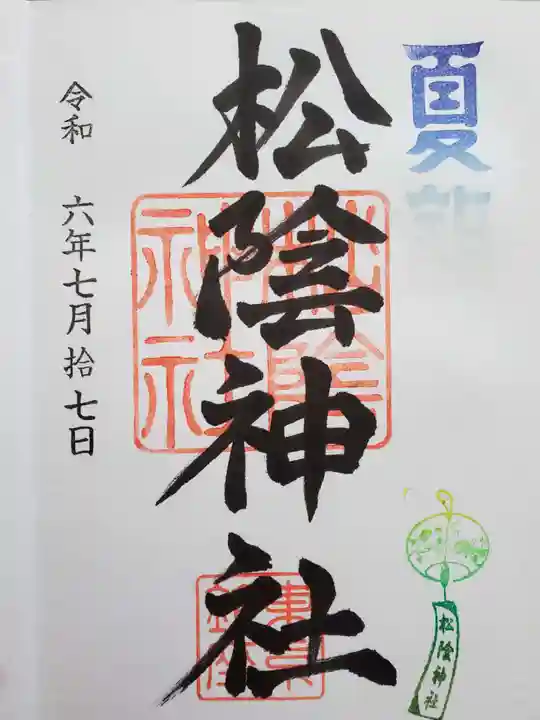 夏詣
松陰神社
松陰神社
東京
令和 六年七月拾七日
松陰神社